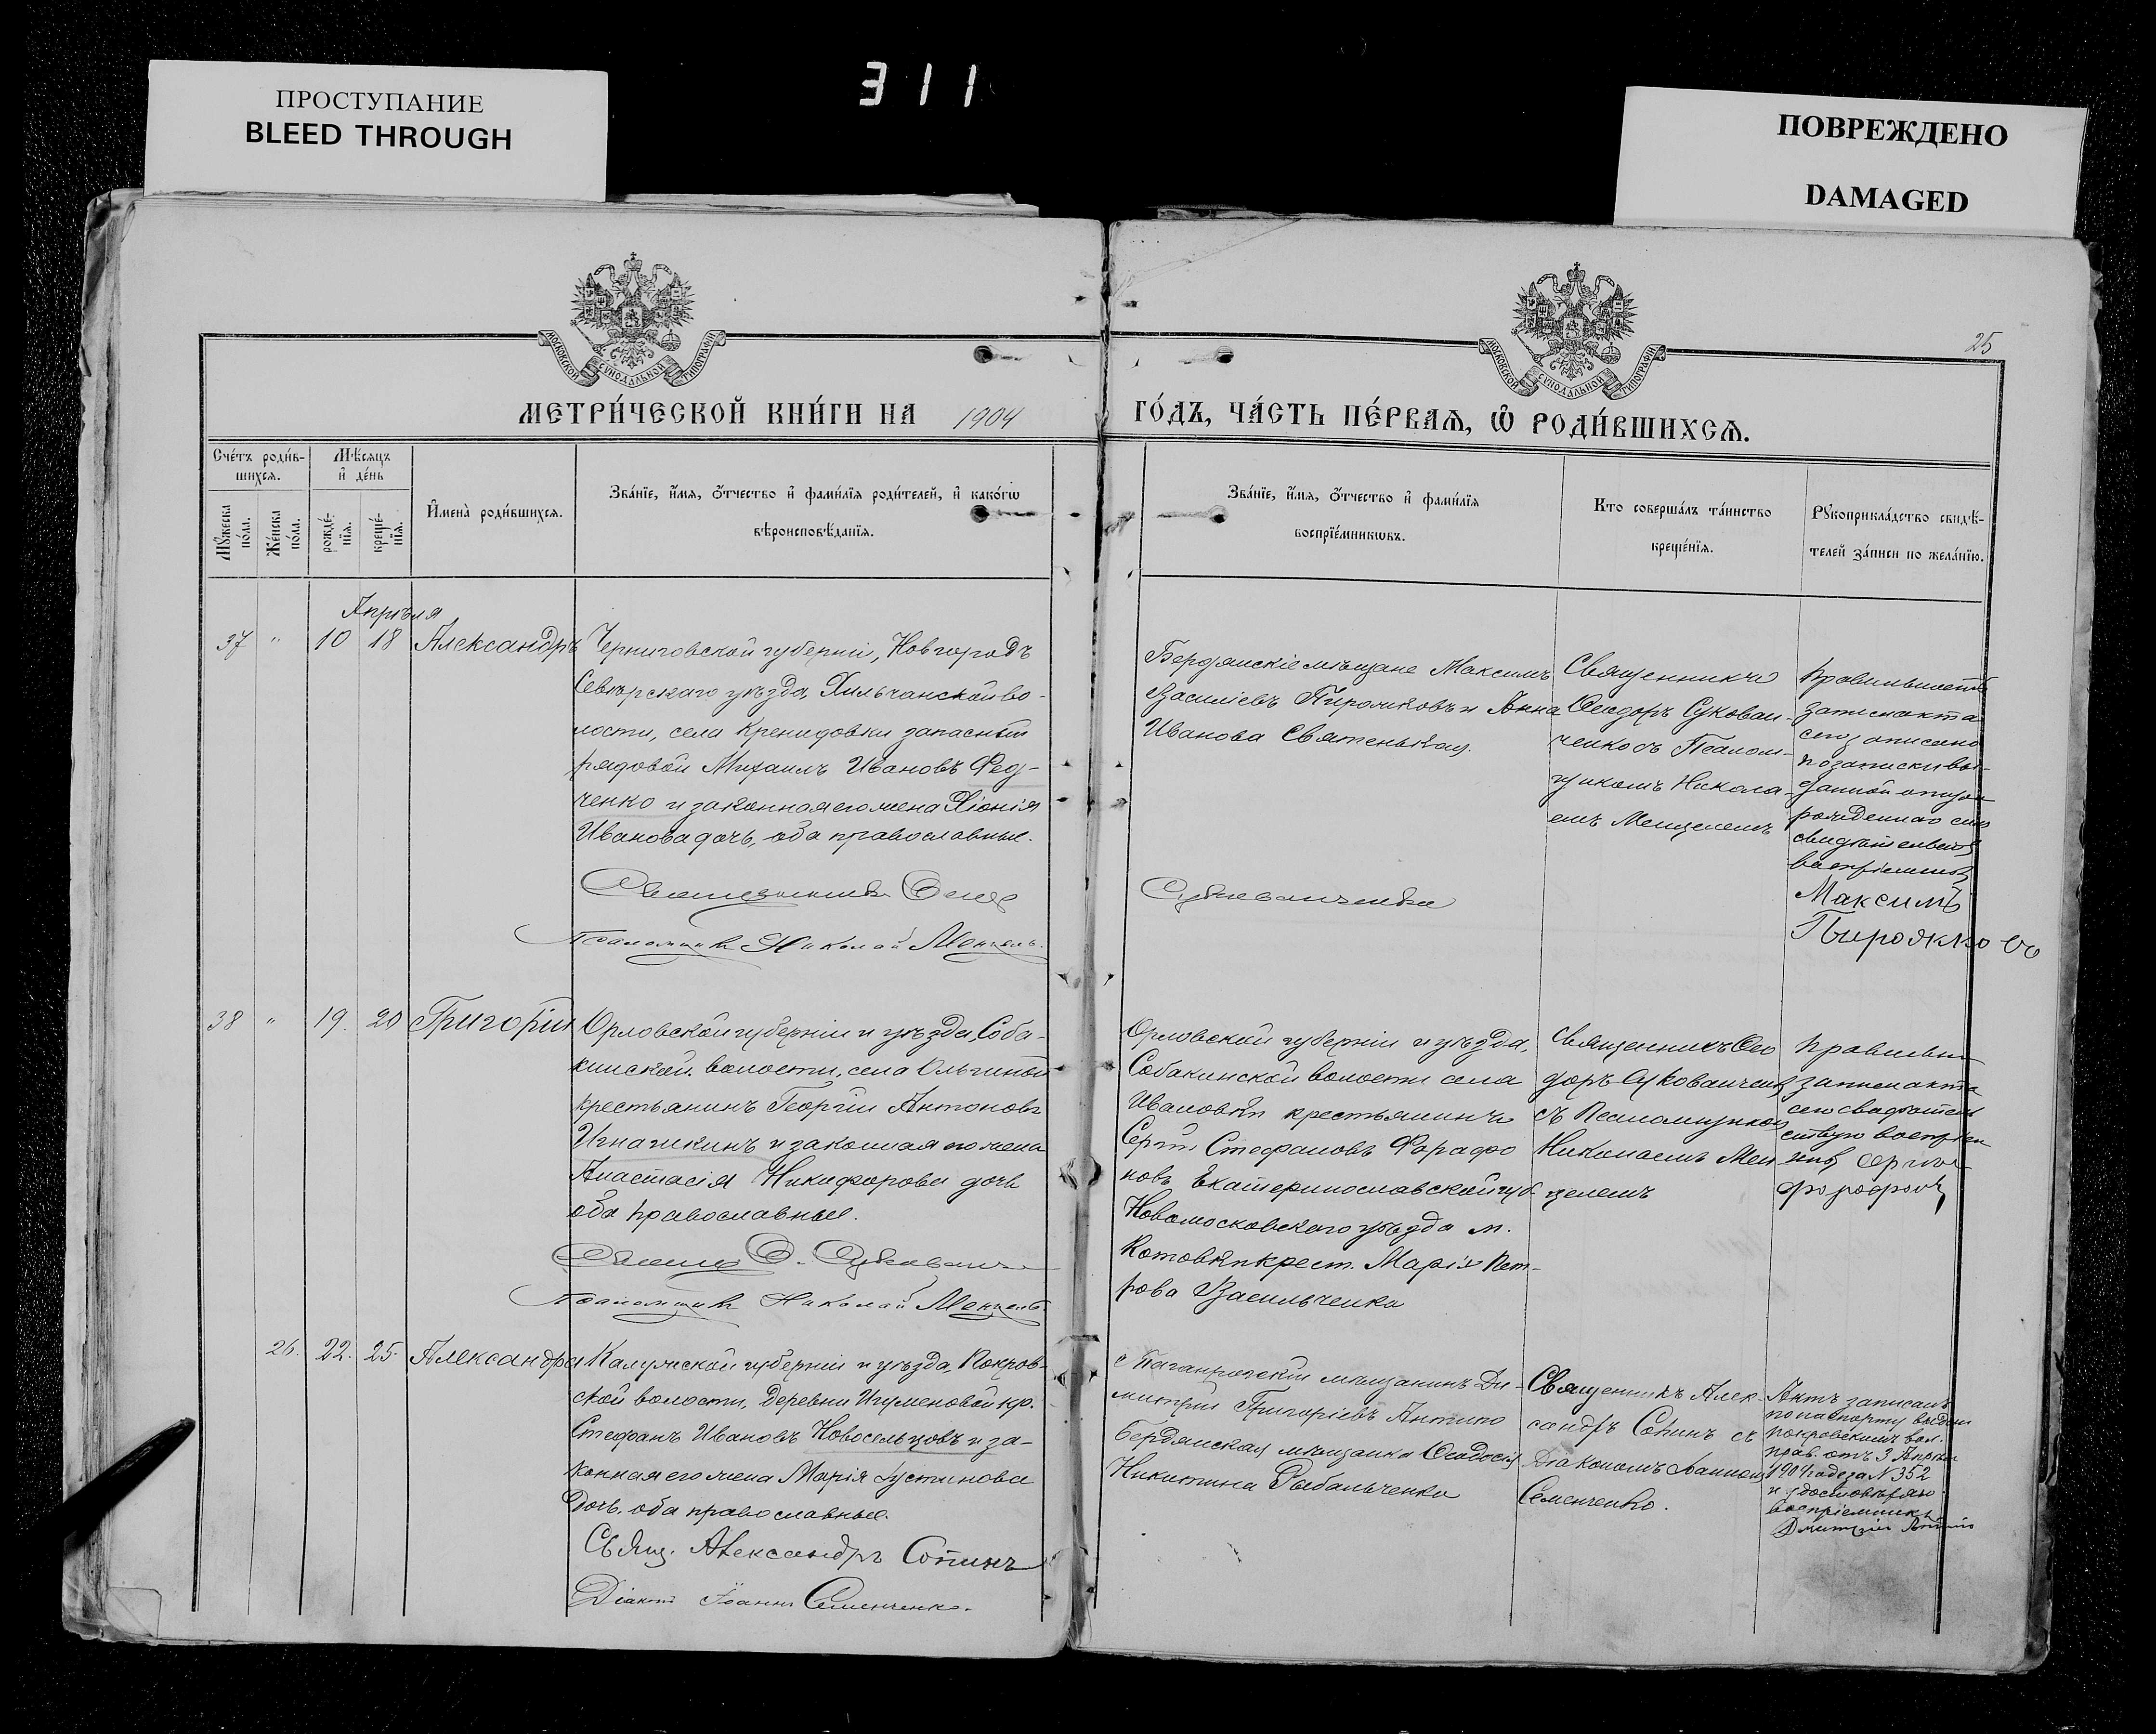 ПРОСТУПАНИЕ
BLEED THROUGH
311
ПОВРЕЖДЕНО
DAMAGED
МОСКОВСКОЙ СѴНОДАЛЬНОЙ ТИПОГРАФІИ
МОСКОВСКОЙ СѴНОДАЛЬНОЙ ТИПОГРАФІИ
25
МЕТРИ́ЧЕСКОЙ КНИ́ГИ НА 1904
ГО́ДЪ, ЧА́СТЬ ПЕ́РВАѦ, Ѽ РОДИ́ВШИХСѦ.
Сче́тъ роди́в-
шихсѧ.
Мꙋжеска по́ла.
Же́нска по́ла.
Мѣ́сѧцъ
и҆ де́нь
рожде́-
нїѧ.
креще́-
нїѧ.
И҆мена̀ роди́вшихсѧ.
Зва́нїе, и҆́мѧ, ѻ҆́тчество и҆ фамі́лїѧ роди́телей, и҆ како́гѡ
вѣроисповѣ́данїѧ.
Зва́нїе, и҆́мѧ, ѻ҆́тчество и҆ фамі́лїѧ
воспрїе́мникѡвъ.
Кто соверша́лъ та́инство
креще́нїѧ.
Рꙋкоприкла́дство свидѣ́-
телей за́писи по жела́нїю.
Апрѣля
37 " 10 18 Александръ
Черниговской губерніи, Новгородъ
Сѣверскаго уѣзда, Хильчанской во-
лости, села Кренидовки запасный
рядовой Михаилъ Ивановъ Фед-
ченко и законная его жена Хіонія
Иванова дочь, оба православные.
Священникъ Ѳеод
Псаломщикъ Николай Менцель.
Бердянскіе мѣщане Максимъ
Василіевъ Пирожковъ и Анна
Иванова Святенькая.
Сукованченко
Священникъ
Ѳеодоръ Сукован-
ченко съ Псалом-
щикомъ Никола-
емъ Менцелемъ
записи акта
сего записано
по записки вы-
данной
Максимъ
Пырожковъ
38 " 19. 20 Григорій
Орловской губерніи и уѣзда, Соба-
кинской волости, села Ольгиной
крестьянинъ Георгій Антоновъ
Игнашкинъ и законная его жена
Анастасія Никифорова дочь
оба православные.
Священ Ѳ. Сукованч
Псаломщикъ Николай Менцель.
Орловской губерніи и уѣзда,
Собакинской волости села
Ивановки крестьянинъ
Сергій Стефановъ Форафо
новъ Екатеринославской губ.
Новомосковскаго уѣзда м.
Котовки крест. Марія Пет-
рова Васильченко
Священникъ Ѳео
доръ Сукованченко
съ Псаломщикомъ
Николаемъ Мен
целемъ
записи акта
сего свидѣтель
ствую воспріем
никъ Сергѣй
26. 22. 25. Александра
Калужской губерніи и уѣзда, Покров-
ской волости, деревни Игуменовой кр.
Стефанъ Ивановъ Новосельцовъ и за-
конная его жена Марія Іустинова
дочь, оба православные.
Свящ. Александръ Сопинъ
Діаконъ Іоаннъ Семенченко.
Таганрогскій мѣщанинъ Ди-
митрій Григоріевъ Антипо
Бердянская мѣщанка Ѳеодосія
Никитина Рыбальченко
Священникъ Алек-
сандръ Сопинъ съ
Діакономъ Іоанномъ
Семенченко.
Актъ записанъ
по паспорту выдан
Покровскимъ вол.
прав. отъ 3 Апрѣля
1904 года за N 352
и удостовѣряю
воспріемникъ
Дмитрій